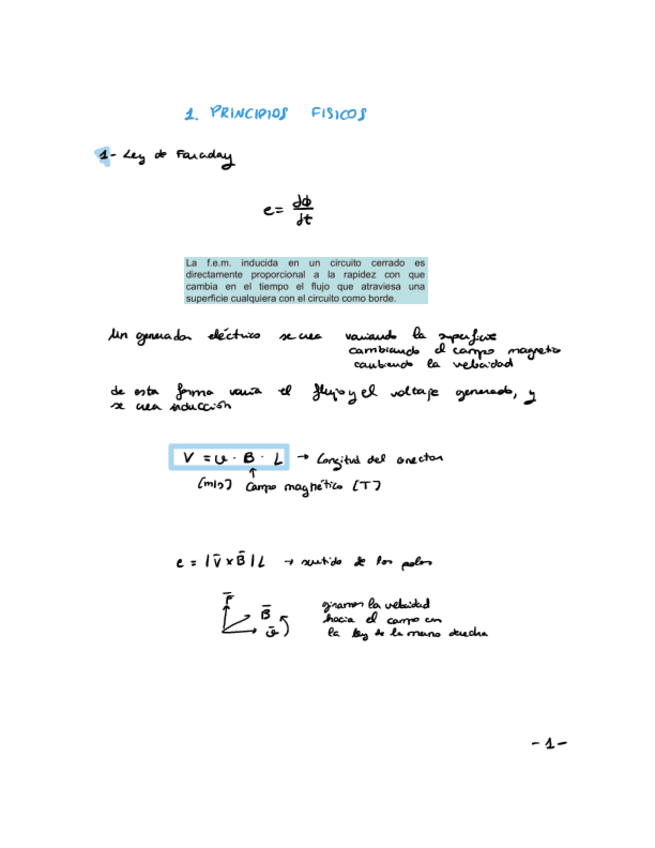 1. PRINCIPIOS FISICOS
1- Ley de Faraday
e = dΦ/dt
La f.e.m. inducida en un circuito cerrado es
directamente proporcional a la rapidez con que
cambia en el tiempo el flujo que atraviesa una
superficie cualquiera con el circuito como borde.
Un generador eléctrico se crea variando la superficie
cambiando el campo magnetico
cambiando la velocidad
de esta forma varia el flujo y el voltaje generado, y
se crea inducción
V = v · B · L → Longitud del conector
[m/s] ↑ Campo magnético [T]
e = |v̄ x B̄| L → sentido de los polos
F̄ B̄ v̄
giramos la velocidad
hacia el campo con
la ley de la mano derecha
- 1 -